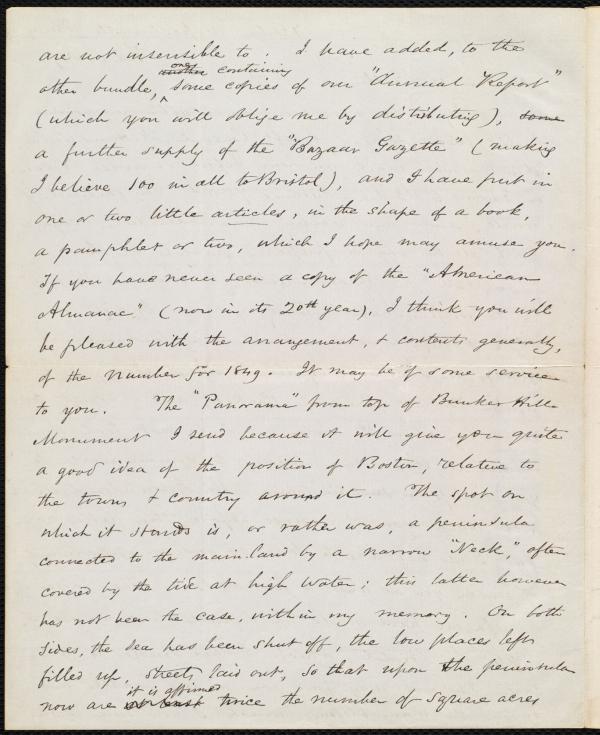 are not insensible to. I have added, to the
one containing
other bundle, another some copies of our "Annual Report"
(which you will oblige me by distributing), some
a further supply of the "Bazaar Gazette" (making
I believe 100 in all to Bristol), and I have put in
one or two little articles, in the shape of a book,
a pamphlet or two, which I hope may amuse you.
If you have never seen a copy of the "American
Almanac" (now in its 20th year), I think you will
be pleased with the arrangement, & contents generally,
of the Number for 1849. It may be of some service
to you. The "Panorama" from top of Bunker Hill
Monument I send because it will give you quite
a good idea of the position of Boston, relative to
the towns & country around it. The spot on
which it stands is, or rather was, a peninsula
connected to the main-land by a narrow "Neck," often
covered by the tide at high water; this latter however
has not been the case, within my memory. On both
sides, the sea has been shut off, the low places left
filled up, streets laid out, so that upon the peninsula
it is affirmed
now are at least twice the number of square acres